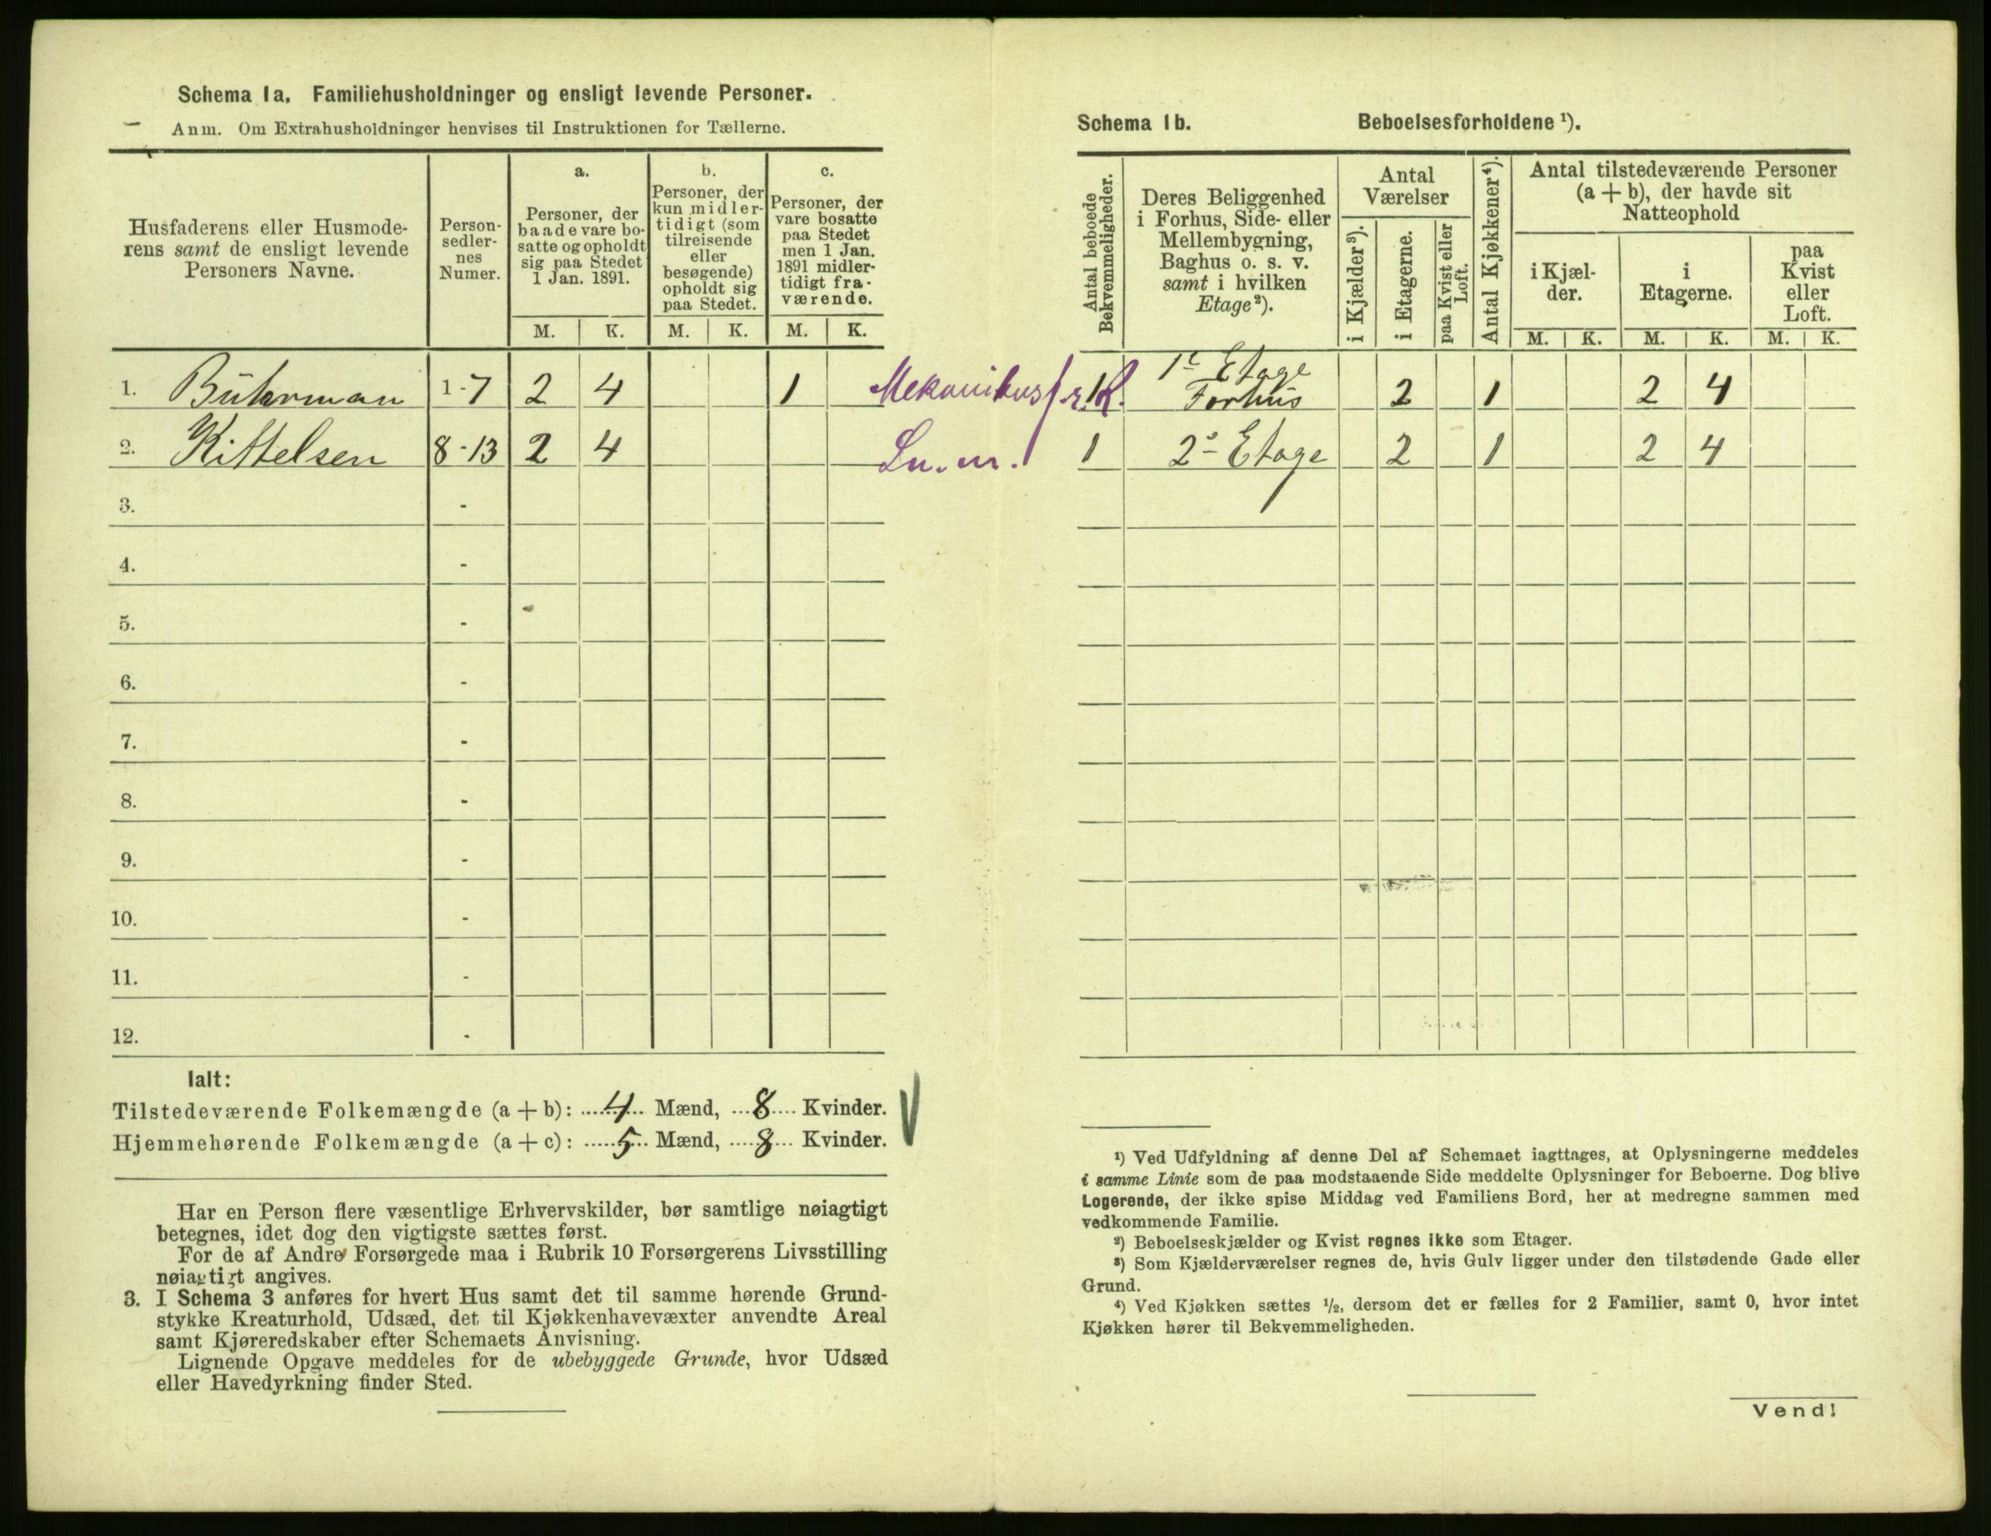 Schema 1a. Familiehusholdninger og ensligt levende Personer.
Anm. Om Extrahusholdninger henvises til Instruktionen for Tællerne.
Husfaderens eller Husmode-
rens samt de ensligt levende
Personers Navne.
Person-
sedler-
nes
Numer.
a.
Personer, der
baade vare bo-
satte og opholdt
sig paa Stedet
1 Jan. 1891.
b.
Personer, der
kun midler-
tidigt (som
tilreisende
eller
besøgende)
opholdt sig
paa Stedet.
c.
Personer, der
vare bosatte
paa Stedet
men 1 Jan.
1891 midler-
tidigt fra-
værende.
M. K. M. K. M. K.
1. Bührman 1-7 2 4 1
2. Kittelsen 8-13 2 4
3. -
4. -
5. -
6. -
7. -
8. -
9. -
10. -
11. -
12. -
Ialt:
Tilstedeværende Folkemængde (a + b): 4 Mænd, 8 Kvinder.
Hjemmehørende Folkemængde (a + c): 5 Mænd, 8 Kvinder.
Har en Person flere væsentlige Erhvervskilder, bør samtlige nøiagtigt
betegnes, idet dog den vigtigste sættes først.
For de af Andre Forsørgede maa i Rubrik 10 Forsørgerens Livsstilling
nøiagtigt angives.
3. I Schema 3 anføres for hvert Hus samt det til samme hørende Grund-
stykke Kreaturhold, Udsæd, det til Kjøkkenhavevæxter anvendte Areal
samt Kjøreredskaber efter Schemaets Anvisning.
Lignende Opgave meddeles for de ubebyggede Grunde, hvor Udsæd
eller Havedyrkning finder Sted.
Schema 1b. Beboelsesforholdene ¹).
Antal beboede
Bekvemmeligheder.
Deres Beliggenhed
i Forhus, Side- eller
Mellembygning,
Baghus o. s. v.
samt i hvilken
Etage²).
Antal
Værelser
i Kjælder³).
i Etagerne.
paa Kvist eller
Loft.
Antal Kjøkkener⁴).
Antal tilstedeværende Personer
(a + b), der havde sit
Natteophold
i Kjæl-
der.
i
Etagerne.
paa
Kvist
eller
Loft.
M. K. M. K. M. K.
1 1ᵗ Etage
Forhus 2 1 2 4
1 2ᵒ Etage 2 1 2 4
¹) Ved Udfyldning af denne Del af Schemaet iagttages, at Oplysningerne meddeles
i samme Linie som de paa modstaaende Side meddelte Oplysninger for Beboerne. Dog blive
Logerende, der ikke spise Middag ved Familiens Bord, her at medregne sammen med
vedkommende Familie.
²) Beboelseskjælder og Kvist regnes ikke som Etager.
³) Som Kjælderværelser regnes de, hvis Gulv ligger under den tilstødende Gade eller
Grund.
⁴) Ved Kjøkken sættes ½, dersom det er fælles for 2 Familier, samt 0, hvor intet
Kjøkken hører til Bekvemmeligheden.
Vend!